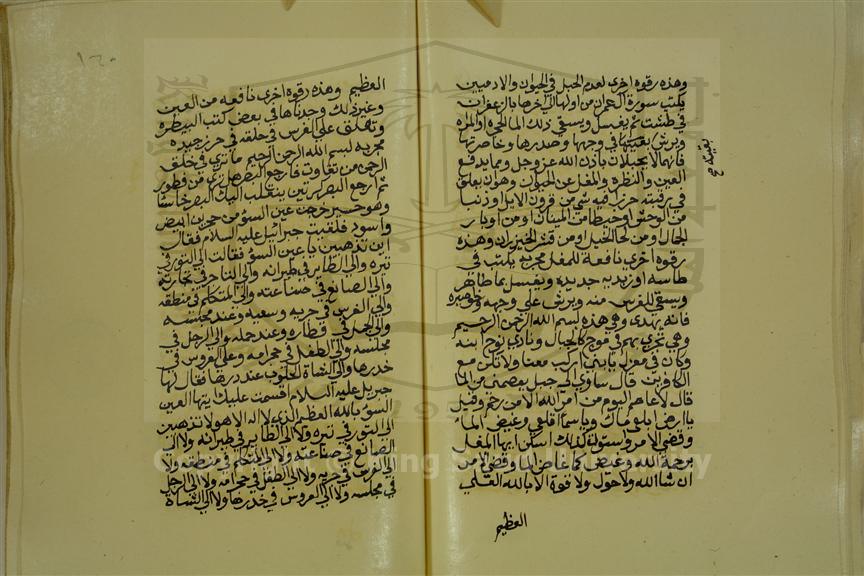 وهذه رقوه اخرى لعدم الحبل في الحيوان والادميين
يكتب سورة ال عمران من اولها الى اخرها بالزعفران
في طشت ثم يغسل ويسقى ذلك الما الحجره او المراه
ويرش بقيتها في وجهها وصدرها وخاصرتها
فانهما لا يحبلات باذن الله عز وجل ومما يدفع
العين والنظره والمغل عن الحيوان وهو ان يعلق
في رقبته حرز فيه شي من قرون الايل او ذنب
من الوحش او خيطا من او من اوبار
الجمال او من لحا الخيل او من الخنزير وهذه
رقوه اخرى نافعة للمغل مجربه يكتب في
طاسه او زبديه جديده ويغسل بما طاهر
ويسقى للفرس منه ويرش على وجهه
فانه يهدى وهي هذه بسم الله الرحمن الرحيم
وهي تجري بهم في موج كالجبال ونادى نوح ابنه
وكان في معزل يا بني اركب معنا ولا تكن مع
الكافرين قال ساوي الى جبل يعصمني من الما
قال لا عاصم اليوم من امر الله الا من رحم وقيل
يا ارض ابلعي ماك ويا سما اقلعي وغيض الما
وقضي الامر واستوت كذلك ايها المغل
الله وغيض كما غاض الما وقضي الامر
ان شا الله ولا حول ولا قوة الا بالله العلي
العظيم
بقيته صح
١٦٠
العظيم وهذه رقوه اخرى نافعه من العين
وغير ذلك وجدناها في بعض كتب البيطره
وتعلق على الفرس في حلقه في حرز جيده
مجربه بسم الله الرحمن الرحيم ما ترى في خلق
الرحمن من تفاوت فارجع البصر هل ترى من فطور
ثم ارجع البصر كرتين ينقلب اليك البصر خاسئا
وهو حسير خرجت عين السؤ من حجرين ابيض
واسود فلقيت جبرائيل عليه السلام فقال
اين تذهبين يا عين السؤ فقالت الى الثور في
نيره والى الطاير في طيرانه والى التاجر في تجارته
والى الصانع في صناعته والى المتكلم في منطقه
والى الفرس في جريه وسعيه وعند مجلسه
والى الجمل في قطاره وعند حمله والى الرجل في
مجلسه والى الطفل في حجر امه وعلى العروس في
خدرها والى الشاة الحلوب عند درها فقال لها
جبريل عليه السلام اقسمت عليك ايتها العين
السؤ بالله العظيم الذي لا اله الا هو لا تذهبين
الى الثور في نيره ولا الى الطاير في طيرانه ولا الى
الصانع في صناعته ولا الى المتكلم في منطقه ولا
الى الفرس في جريه ولا الى الطفل في حجر امه ولا الى الرجل
في مجلسه ولا الى العروس في خدرها ولا الى الشاة